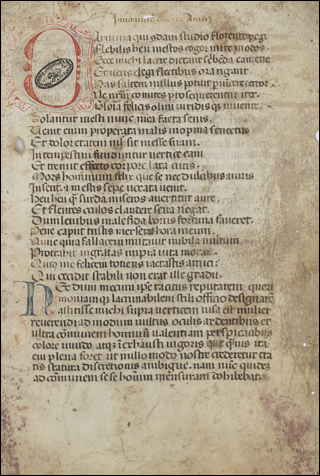 CArmina qui qondam studio florente pegi
Flebilis heu mestos cogor inire modos
Ecce michi lacere dictant scribenda camene
Et ueris elegi fletibus ora rigant
Has saltem nullus potuit puicere terror
Ne nostrum comites prosequerentur iter
Gloria felicis olim uiridisque iuuente
Solantur mesti nunc mea facta senis
Uenit enim properata malis inopina senectus
Et dolor etatem iussit inesse suam
Intempestiui funduntur uertice cani
Et tremit effeto corpore laxa cutis
Mors hominum felix que se nec dulcibus annis
Inserit et mestis sepe uocata uenit
Heu heu q surda miseros auertitur aure
Et flentes oculos claudere seua negat
Dum leuibus male fida bonis fortuna faueret
Pene caput tristis merserat hora meum
Nunc quia fallacem mutauit nubila uultum
Protrahit ingratas impia uita moras
Quid me felicem totiens iactastis amici
Qui cecidit stabili non erat ille gradu
Hec dum mecum ipse tacitus reputarem queri
moniamque lacrimabilem stili officio designarem
astitisse michi supra uerticem uisa est mulier
reuerendi admodum uultus oculis ardentibus et
ultra communem hominum ualentiam perspicacibus
colore uiuido atque inexhausti uigoris quamuis ita
eui plena foret ut nullo modo nostre crederetur eta
tis statura discretionis ambigue. nam nunc quidem
ad communem sese hominum mensuram cohibebat.